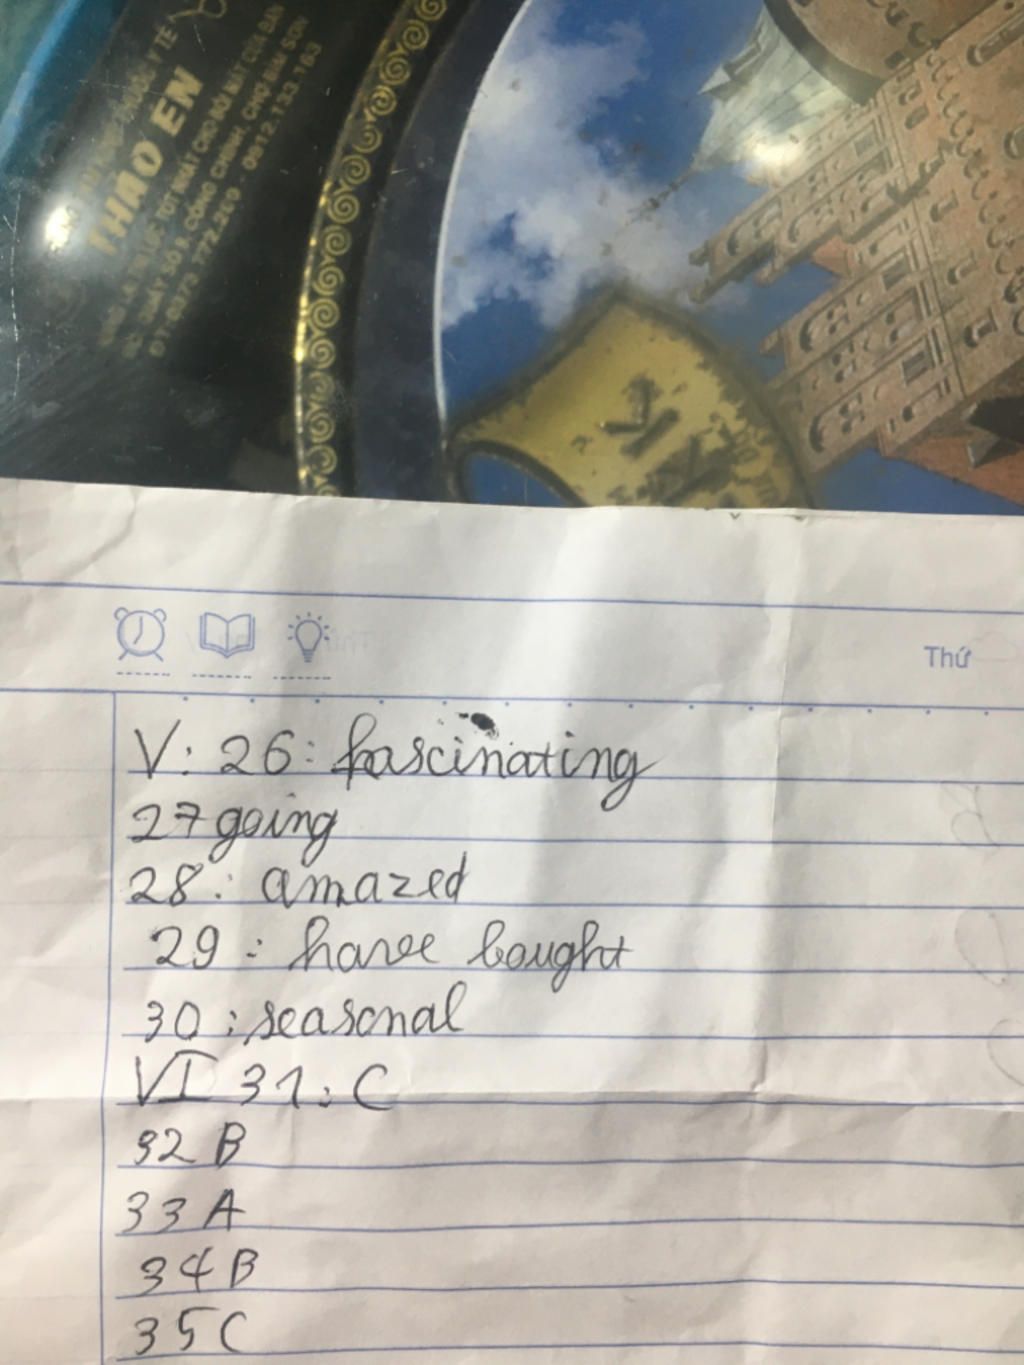 THAO EN
Thứ
V: 26: fascinating
27 going
28: amazed
29: have bought
30: seasonal
VI 31: C
32 B
33 A
34 B
35 C